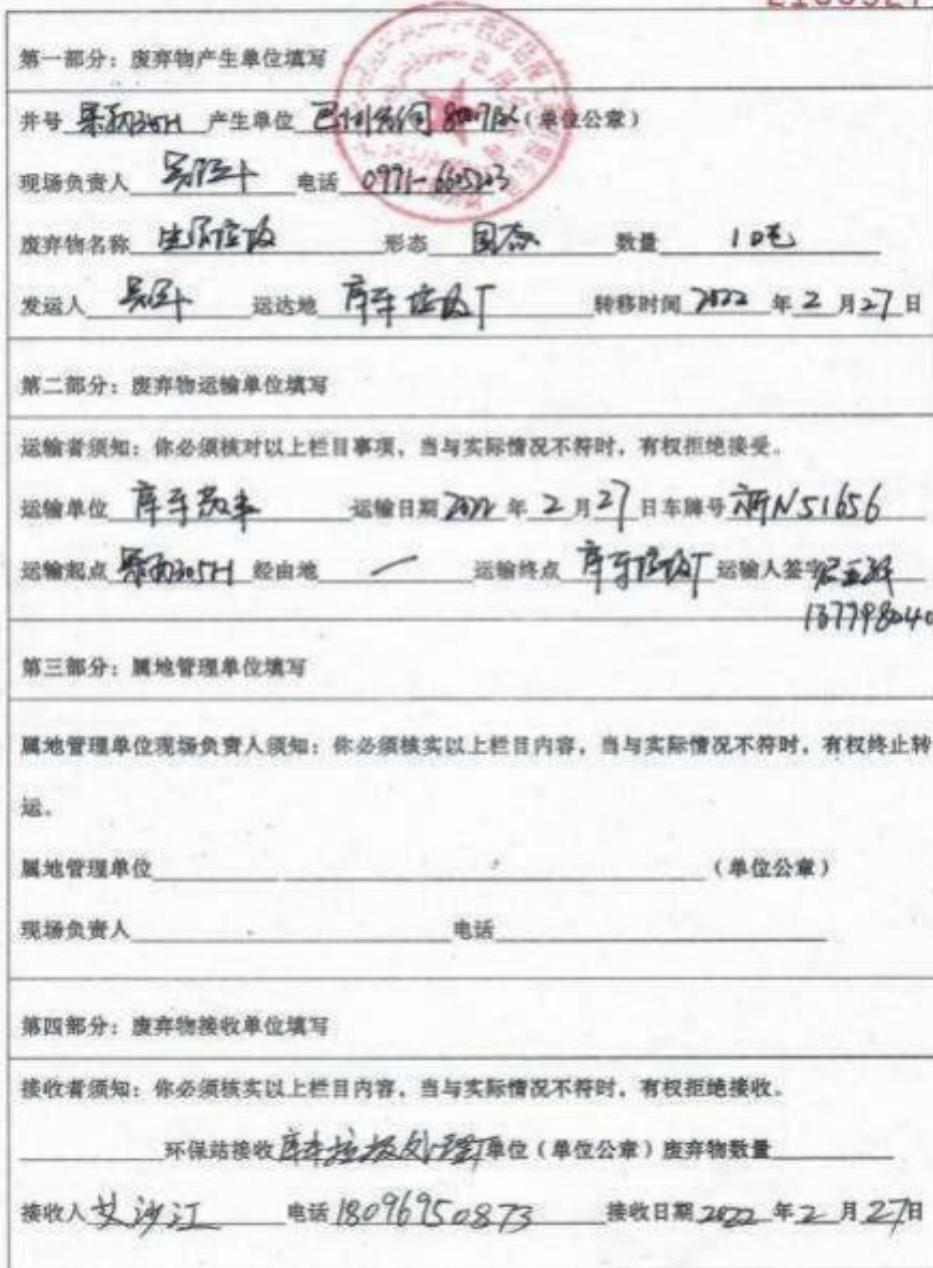 第一部分：废弃物产生单位填写
井号 产生单位 (单位公章)
现场负责人 电话
废弃物名称 生活垃圾 形态 固态 数量 10吨
发运人 运达地 库车垃圾厂 转移时间 2022 年 2 月 27 日
第二部分：废弃物运输单位填写
运输者须知：你必须核对以上栏目事项，当与实际情况不符时，有权拒绝接受。
运输单位 运输日期 2022 年 2 月 27 日 车牌号 新N51656
运输起点 经由地 一 运输终点 库车垃圾厂 运输人签字
第三部分：属地管理单位填写
属地管理单位现场负责人须知：你必须核实以上栏目内容，当与实际情况不符时，有权终止转
运。
属地管理单位 (单位公章)
现场负责人 电话
第四部分：废弃物接收单位填写
接收者须知：你必须核实以上栏目内容，当与实际情况不符时，有权拒绝接收。
环保站接收 库车垃圾处理厂 单位（单位公章）废弃物数量
接收人 艾沙江 电话 18096950873 接收日期 2022 年 2 月 27 日